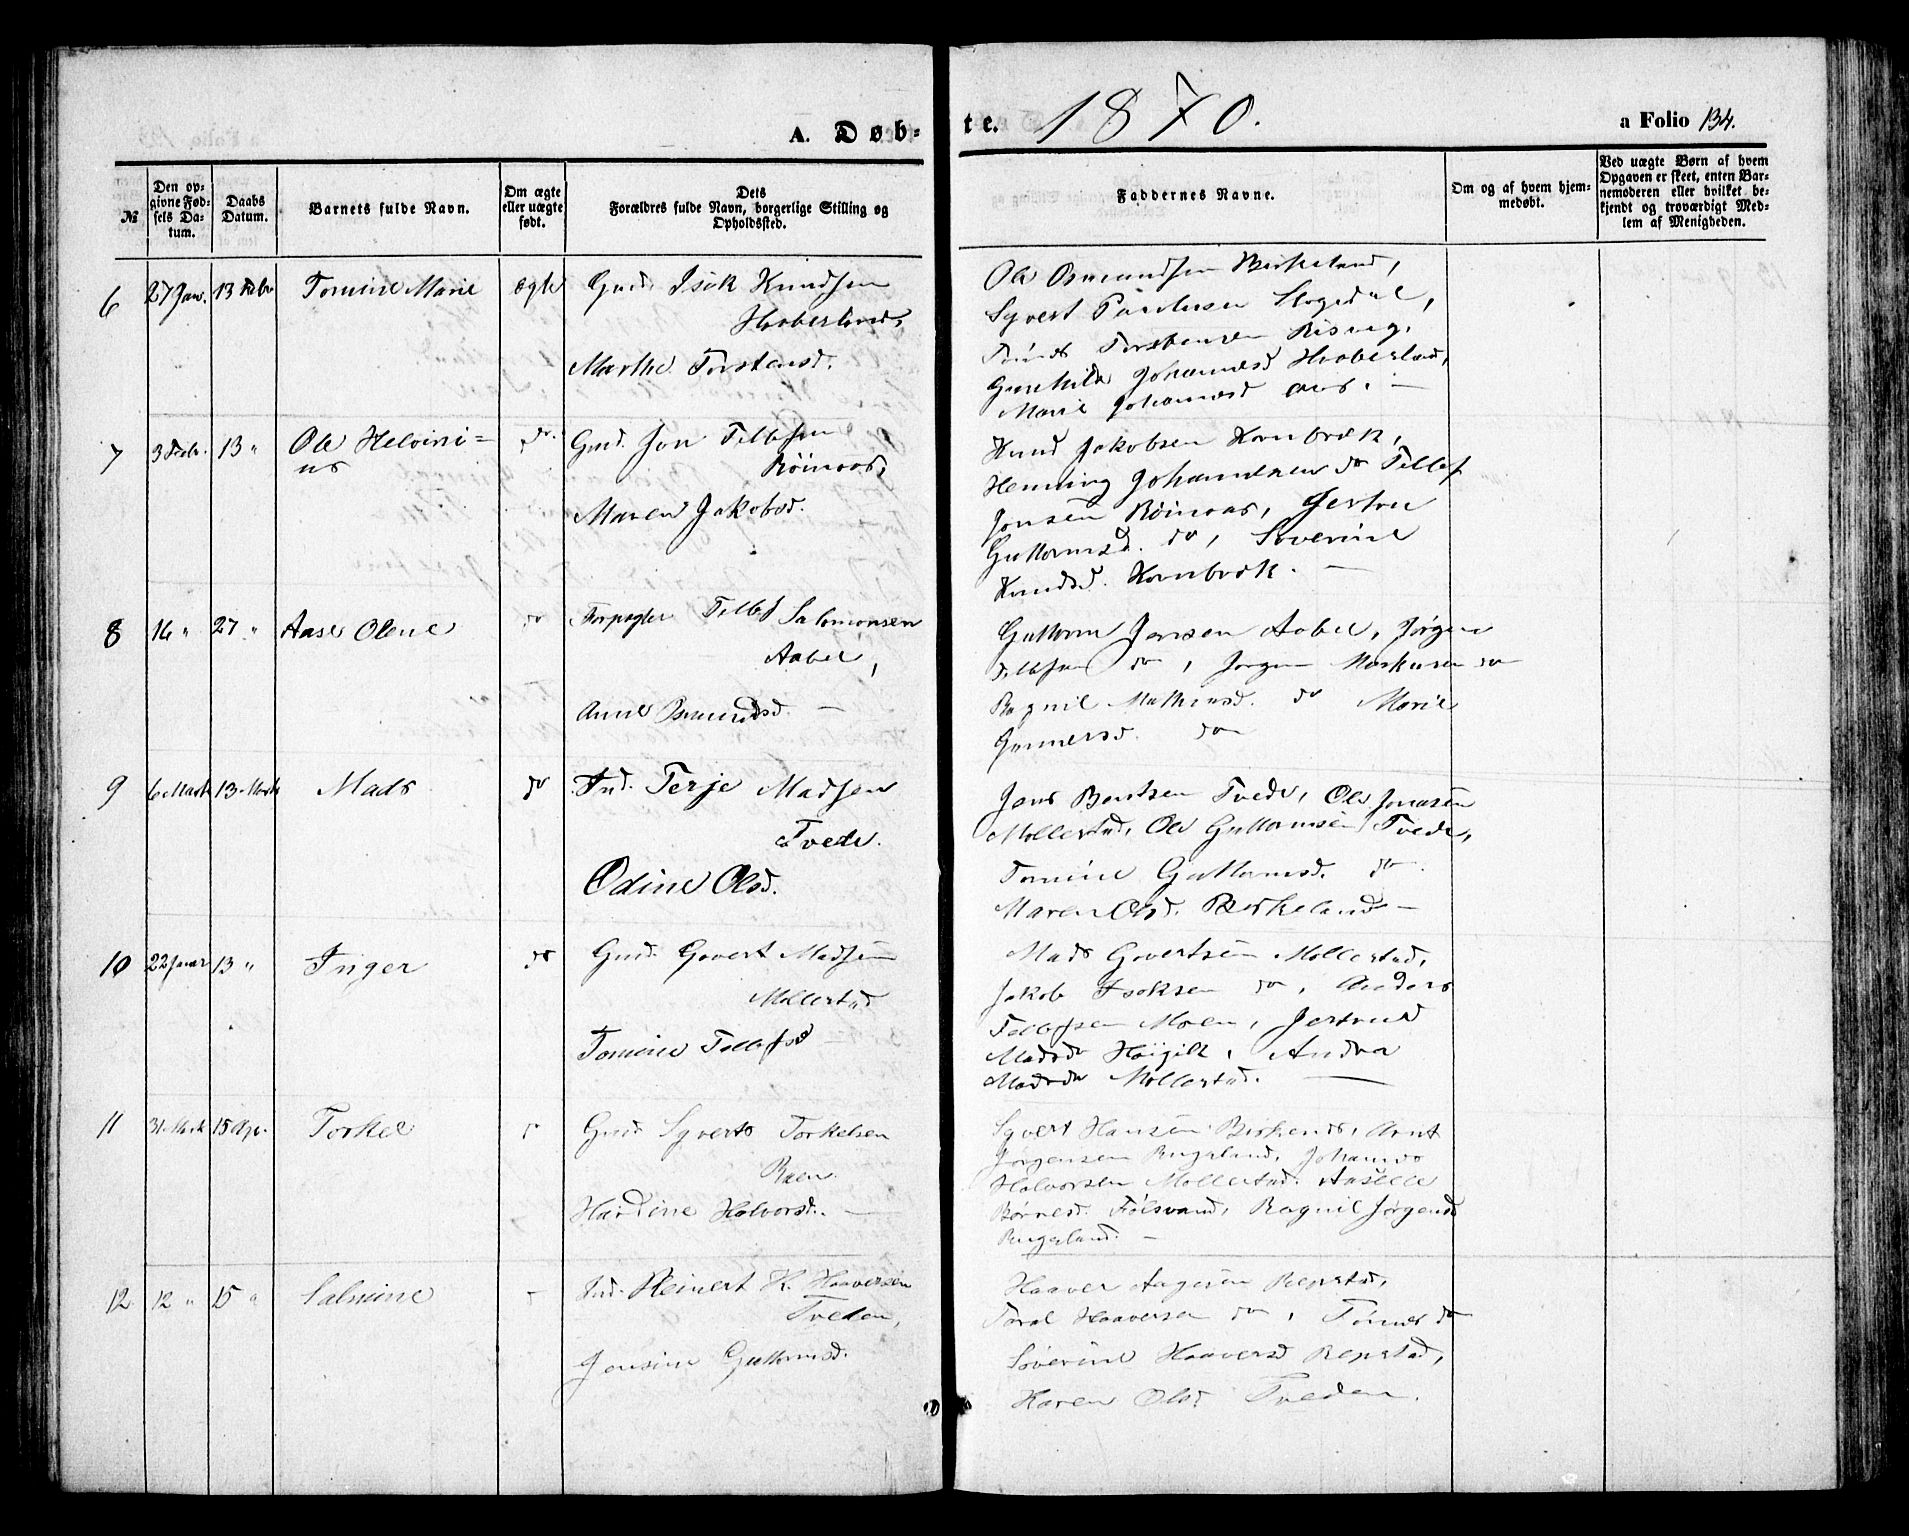 A. Døb-
te. 1870. a Folio 134.
№
Den opgivne Fødsels Datum.
Daabs Datum.
Barnets fulde Navn.
Om ægte eller uægte født.
Dets Forældres fulde Navn, borgerlige Stilling og Opholdssted.
Faddernes Navne.
Om og af hvem hjemmedøbt.
Ved uægte Børn af hvem Opgaven er skeet, enten Barnemoderen eller hvilket bekjendt og troværdigt Medlem af Menigheden.
6 27 Jan. 13 Febr Tomine Marie ægte Gmd. Isak Knudsen
Haaberland,
Marthe Torstensd.
Ole Osmundsen Birkeland,
Syvert Paulusen Slogedal,
Tønes Torstensen Risveg,
Gunhild Johannesd Haaberland,
Marie Johannesd
7 3 Febr. 13 " Ole Helvini=
us do. Gmd. Jon Tellefsen
Røinaas,
Maren Jakobsd.
Knud Jakobsen Hornbræk,
Henning Johannesen do Tellef
Jonsen Røinaas, Jertru
Guttormsd. do, Severine
Knudsd. Hornbræk. —
8 16 " 27 " Aase Olene do Forpagter Tellef Salomonsen
Aabel,
Anne Osmundsd. —
Guttorm Jensen Aabel, Jørgen
Tellefsen do, Jørgen Markusen do
Ragnil Mathiasd. do Marie
Gunnersd. do
9 6 Marts 13 Marts Mads do Ind. Terje Madsen
Tvede.
Odine Olsd.
Jens Bentsen Tvede, Ole Jonasen
Mollestad, Ole Guttormsen Tvede,
Tomine Guttormsd. do.
Maren Olsd. Birkeland —
10 22 Januar 13 " Inger do Gmd. Govert Madsen
Mollestad
Tomine Tellefsd —
Mads Govertsen Mollestad,
Jakob Isaksen do, Anders
Tellefsen Moen, Jertrud
Madsd Høigilt, Andrea
Madsd Mollestad. —
11 31 Marts 15 Apr. Torkel Gmd Syvert Torkelsen
Raen.
Hardine Halvorsd. —
Syvert Hansen Birkenes, Arnt
Jørgensen Rugsland, Johannes
Halvorsen Mollestad. Aaselle
Børnesd. Følsvand, Ragnil Jørgensd
Rugsland. —
12 12 " 15 " Salmine Ind. Reinert K. Haaversen
Tveden,
Jonsine Guttormsd.
Haaver Aagesen Repstad,
Taral Haaversen do, Tønnes do
Severine Haaversd Repstad,
Karen Olsd Tveden.